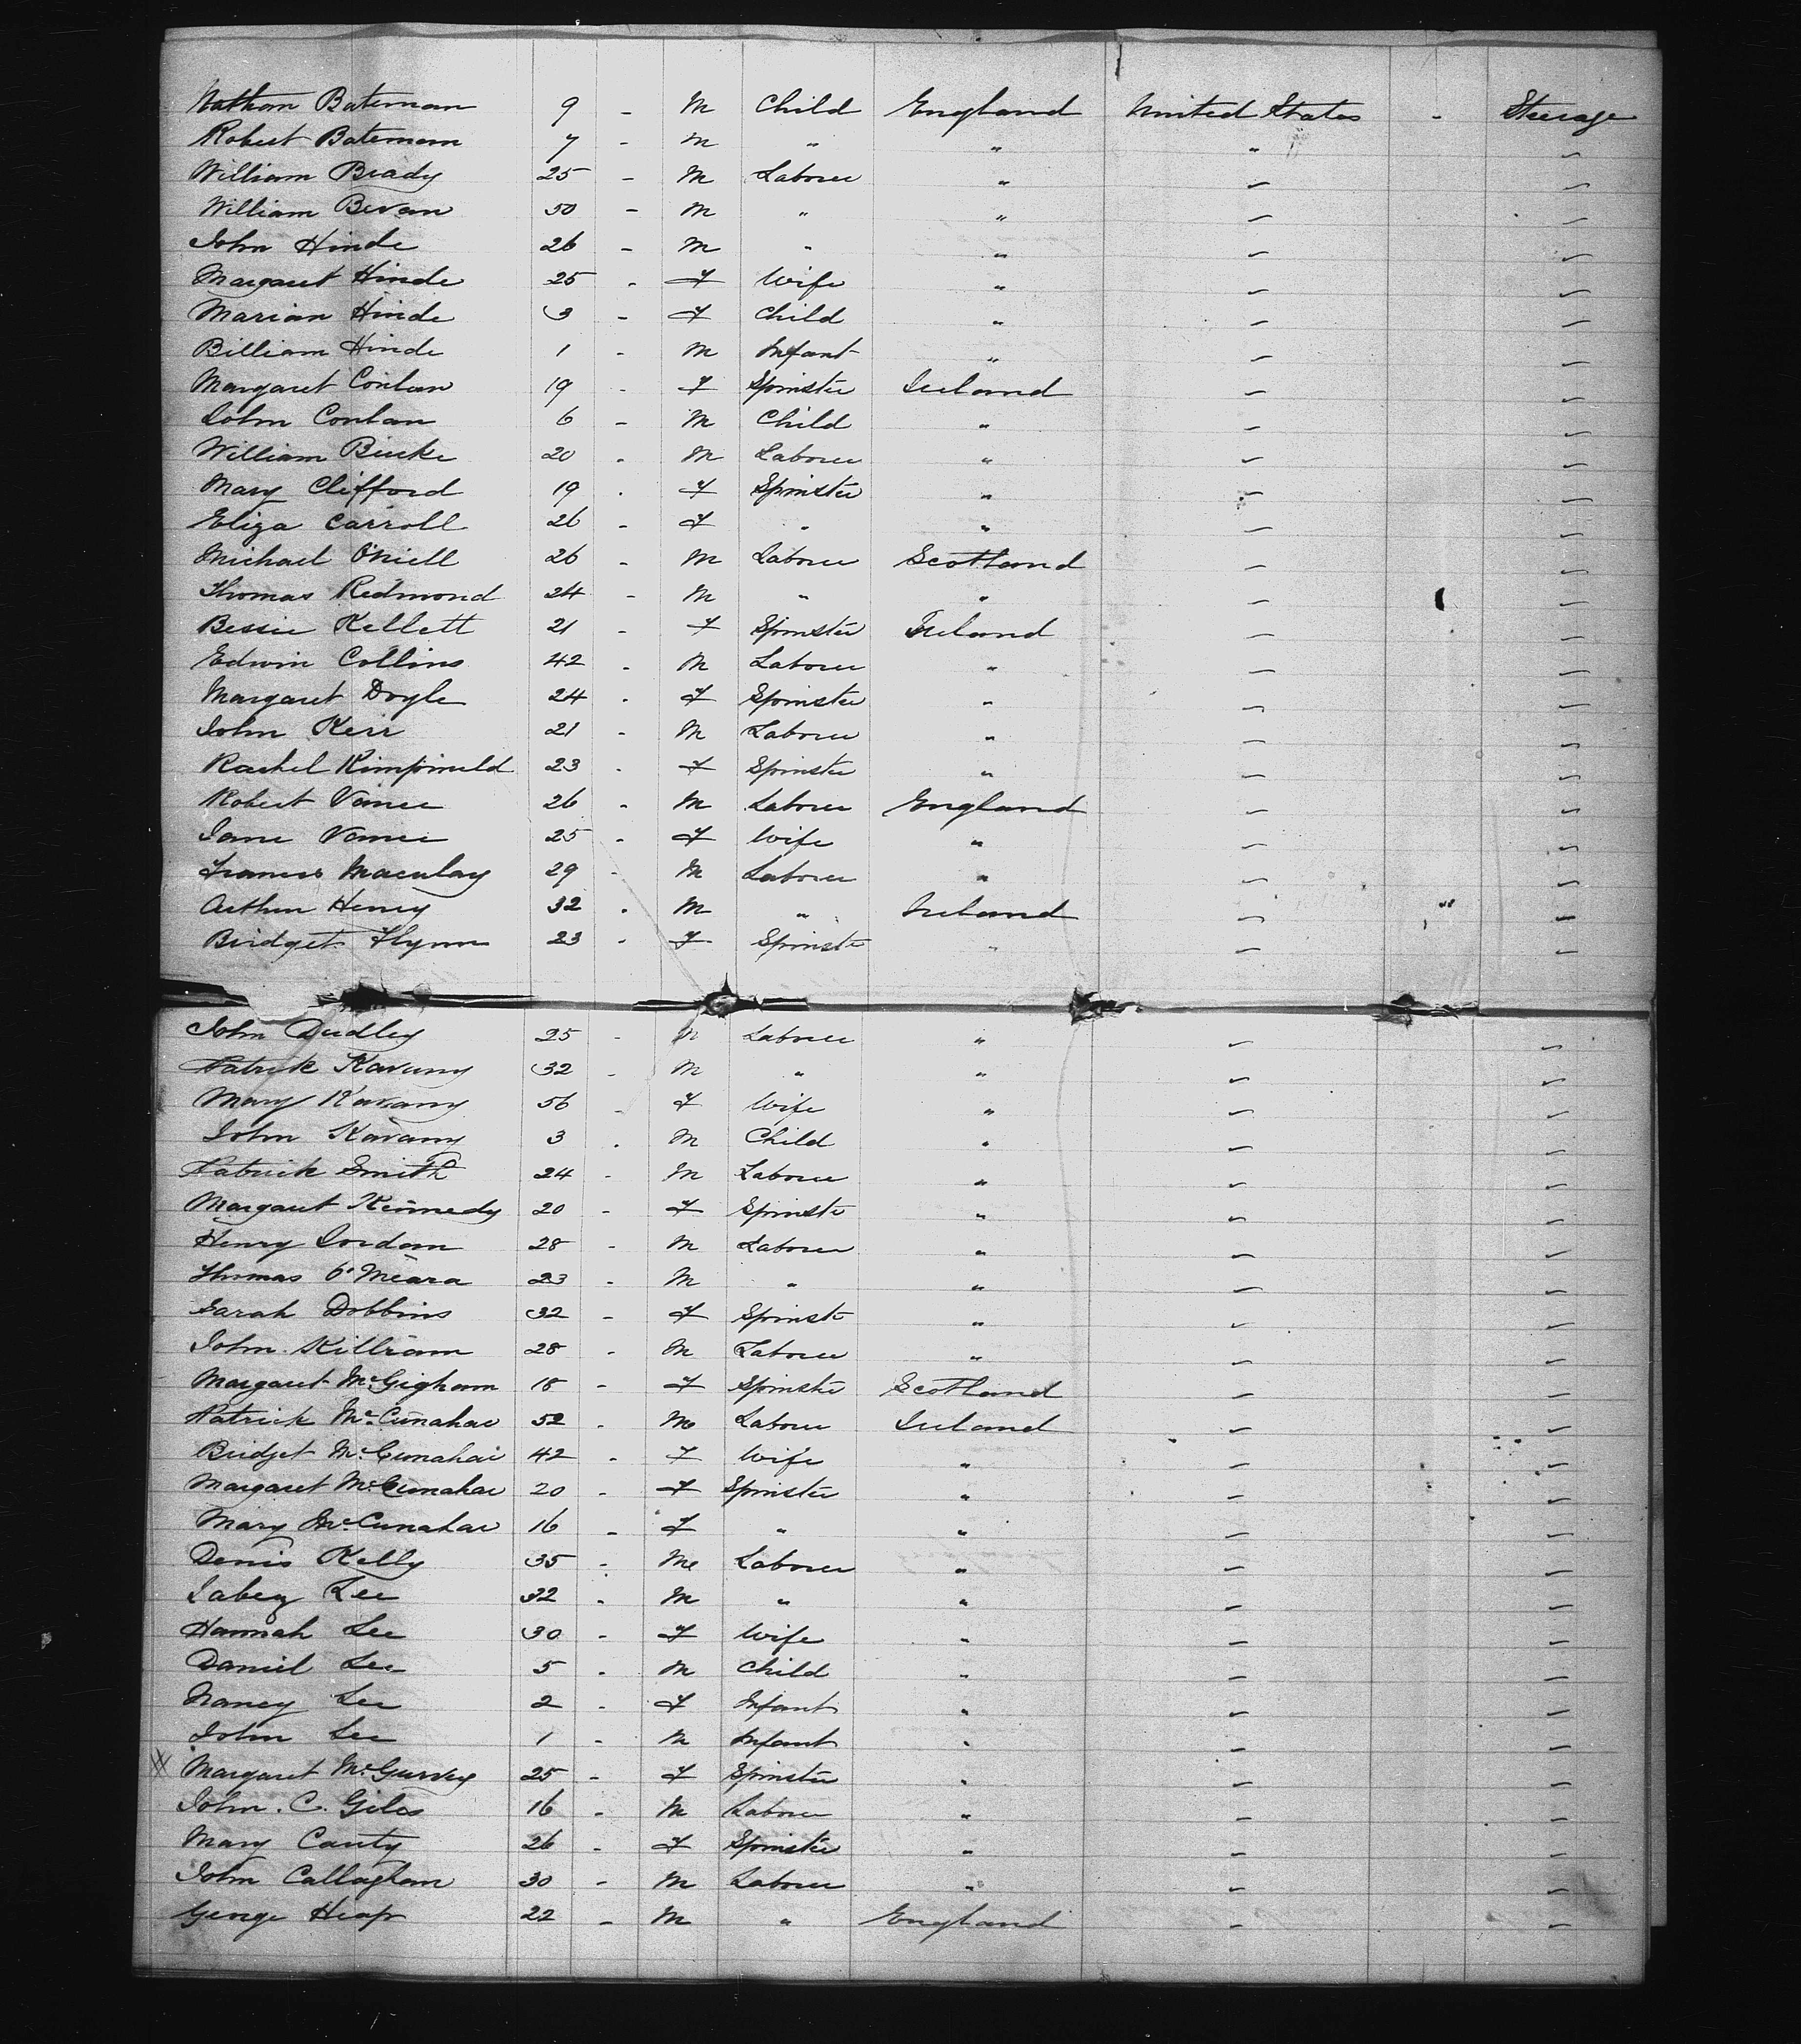 Nathan Bateman 9 - M Child England United States - Steerage
Robert Bateman 7 - M " " " "
William Brady 25 - M Laborer " " "
William Bevan 50 - M " " " "
John Hinde 26 - M " " " "
Margaret Hinde 25 - F Wife " " "
Marian Hinde 3 - F Child " " "
Billiam Hinde 1 - M Infant " " "
Margaret Conlan 19 - F Spinster Ireland " "
John Conlan 6 - M Child " " "
William Burke 20 - M Laborer " " "
Mary Clifford 19 - F Spinster " " "
Eliza Carroll 26 - F " " " "
Michael O'Niell 26 - M Laborer Scotland " "
Thomas Redmond 24 - M " " " "
Bessie Kellett 21 - F Spinster Ireland " "
Edwin Collins 42 - M Laborer " " "
Margaret Doyle 24 - F Spinster " " "
John Kerr 21 - M Laborer " " "
Rachel 23 - F Spinster " " "
Robert Vance 26 - M Laborer England " "
Jane Vance 25 - F Wife " " "
Francis Macaulay 29 - M Laborer " " "
Arthur Henry 32 - M " Ireland " " "
Bridget Flynn 23 - F Spinst " " "
John Dudley 25 - M Laborer " " "
Patrick Kavany 32 - M " " " "
Mary Kavany 56 - F Wife " " "
John Kavany 3 - M Child " " "
Patrick Smith 24 - M Laborer " " "
Margaret Kennedy 20 - F Spinst " " "
Henry Jordan 28 - M Laborer " " "
Thomas O'Meara 23 - M " " " "
Sarah Dobbins 32 - F Spinst " " "
John Killiam 28 - M Laborer " " "
Margaret McGigham 18 - F Spinster Scotland " "
Patrick McCunahae 52 - M Laborer Ireland " "
Bridget McCunahae 42 - F Wife " " "
Margaret McCunahae 20 - F Spinster " " "
Mary McCunahae 16 - F " " " "
Denis Kelly 35 - M Laborer " " "
Jabez Lee 32 - M " " " "
Hannah Lee 30 - F Wife " " "
Daniel Lee 5 - M Child " " "
Nancy Lee 2 - F Infant " " "
John Lee 1 - M Infant " " "
Margaret McGurvey 25 - F Spinster " " "
John. C. Giles 16 - M Laborer " " "
Mary Canty 26 - F Spinster " " "
John Callaghan 30 - M Laborer " " "
George Heap 22 - M " England " "